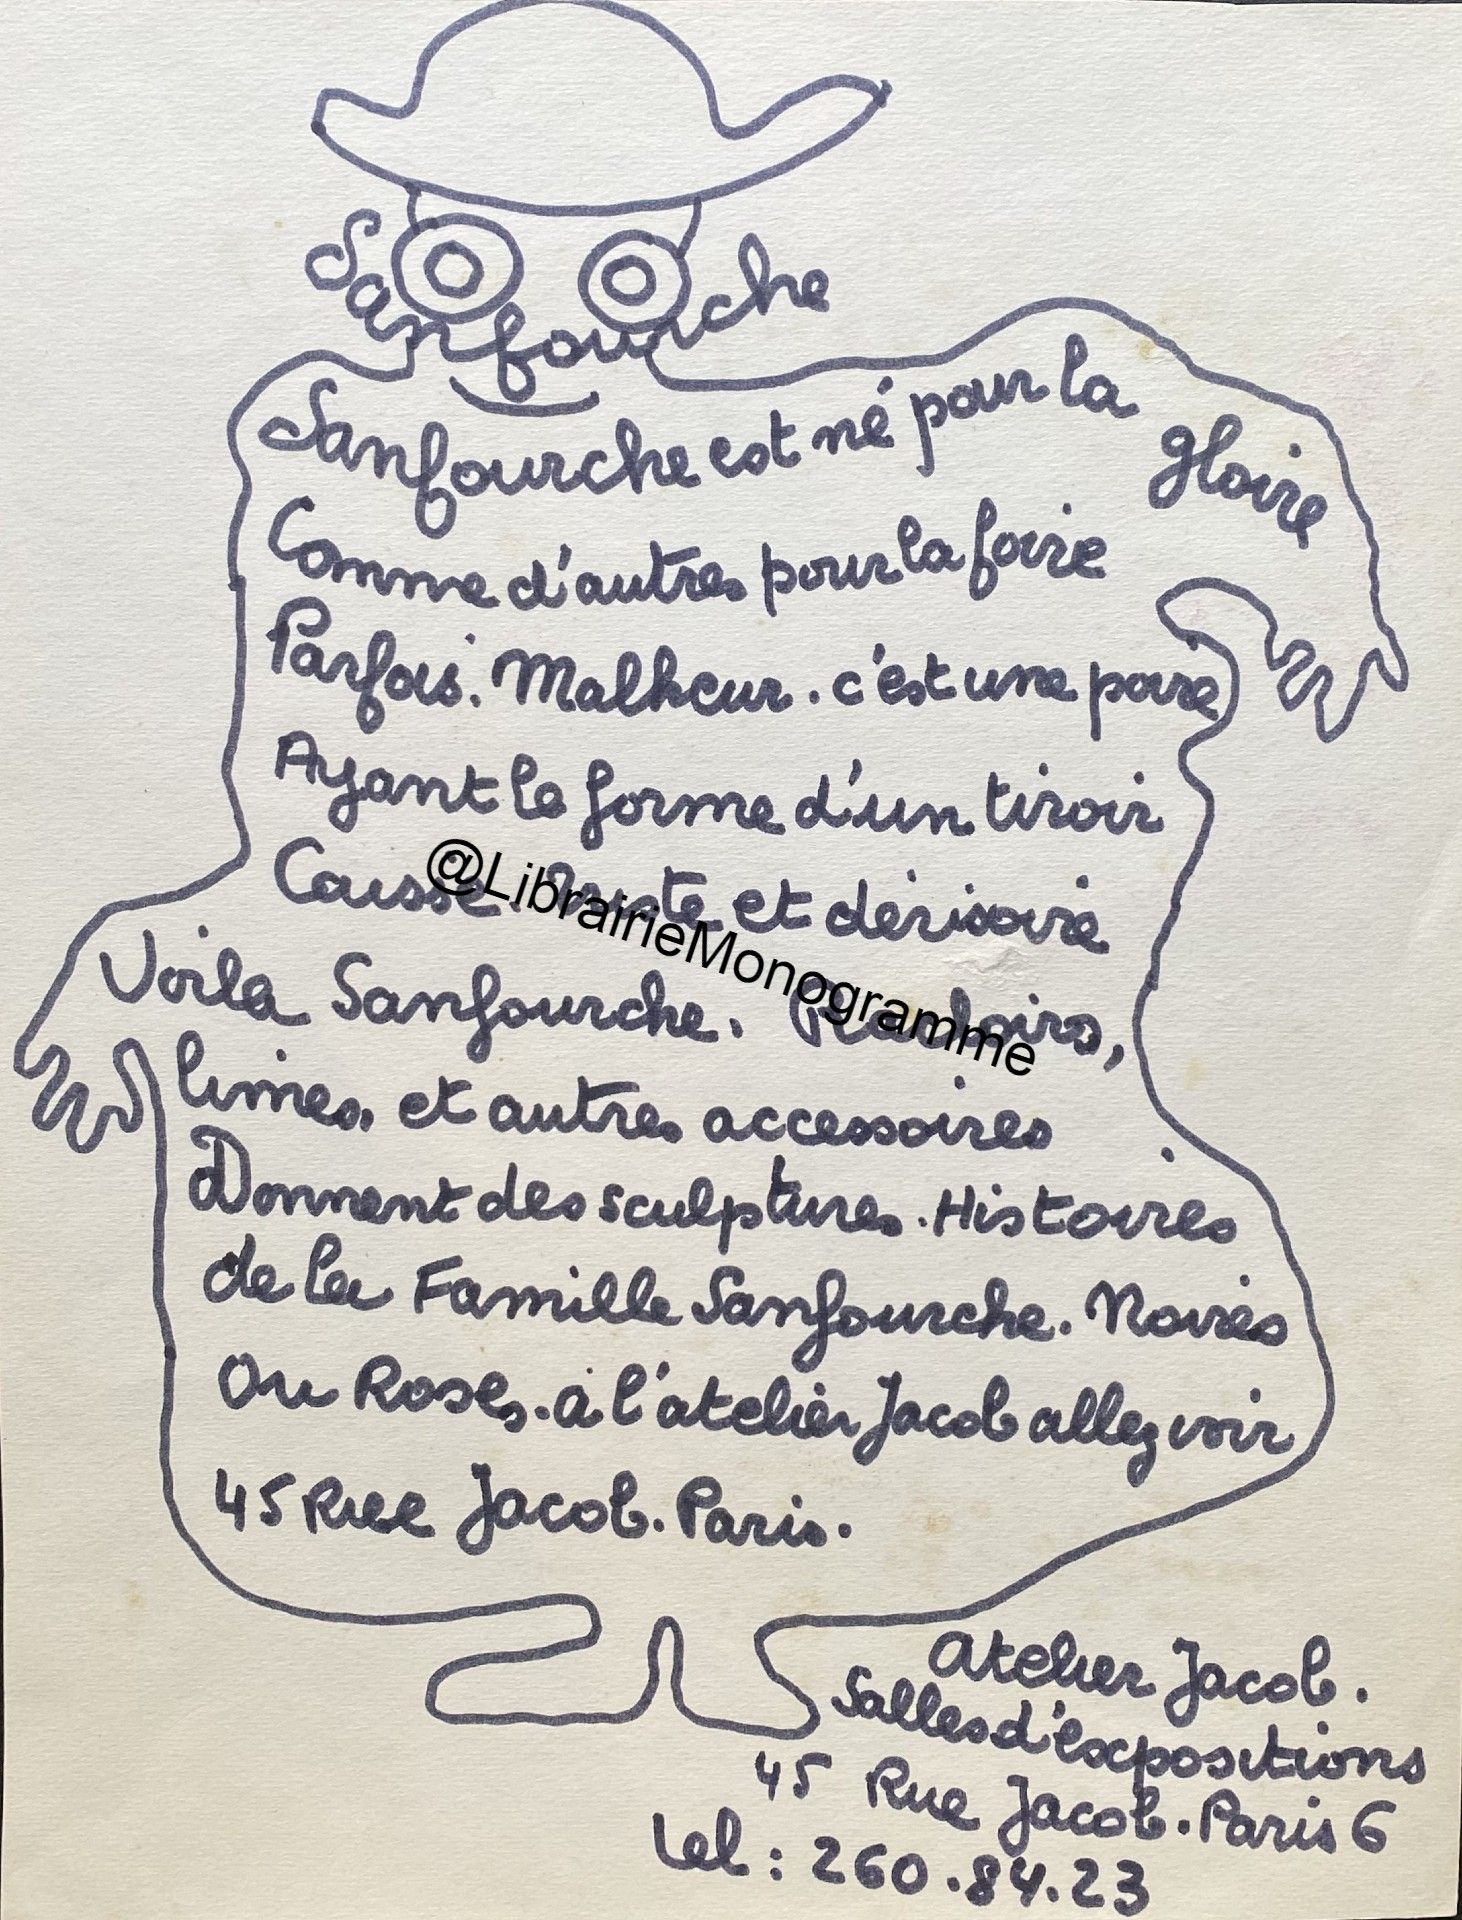 Sanfourche
Sanfourche est né pour la gloire
Comme d'autres pour la foire
Parfois. Malheur. c'est une poire
Ayant la forme d'un tiroir
Caisse. et dérisoire
@LibrairieMonogramme
Voila Sanfourche. Racloirs,
limes, et autres accessoires
Donnent des sculptures. Histoires
de la Famille Sanfourche. Noires
Ou Roses. à l'atelier Jacob allez voir
45 Rue Jacob. Paris.
atelier Jacob.
Salles d'expositions
45 Rue Jacob. Paris 6
tel : 260.84.23